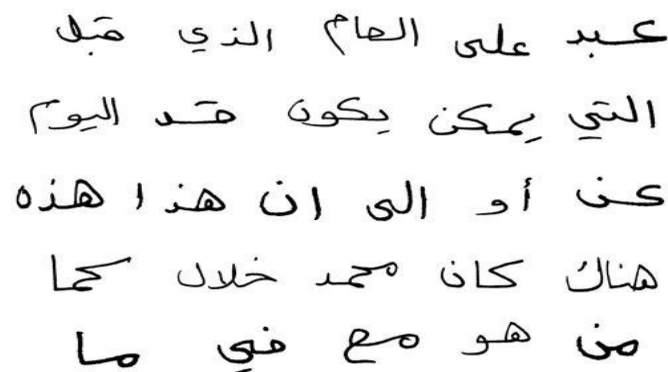 عبد على العام الذي قبل
التي يمكن يكون قد اليوم
عن أو الى ان هذا هذه
هناك كان محمد خلال كما
من هو مع في ما